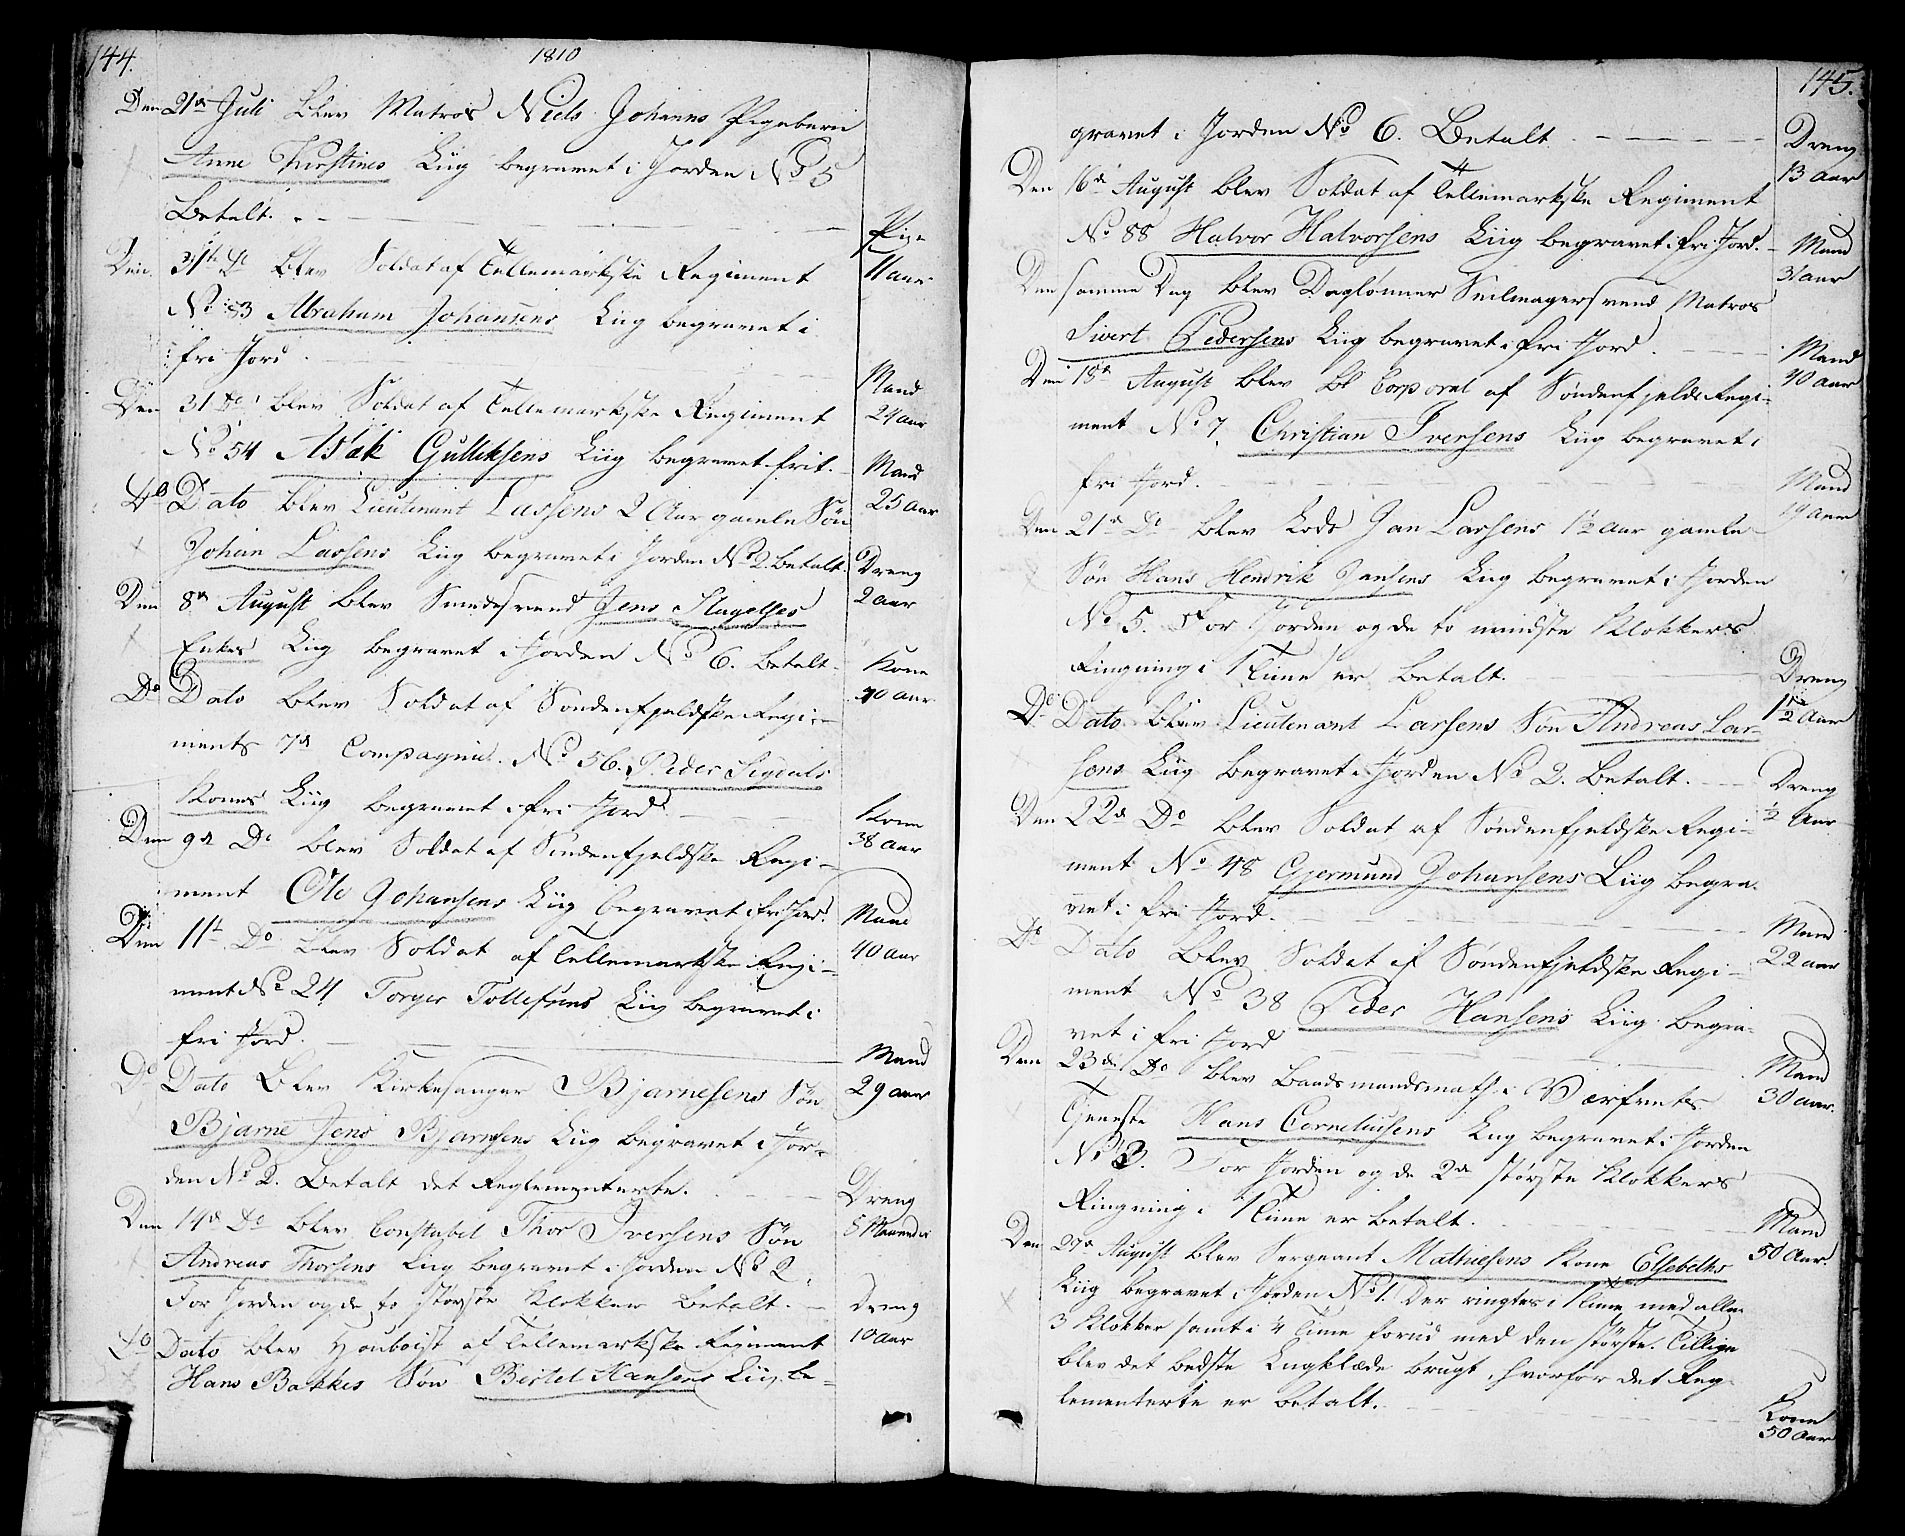 144.
1810
Den 21de Juli blev Matros Niels Johanns Pigebarn
Anne Kirstines Liig begravet i Jorden No 5
Betalt.
Pige
11 aar
Den 31te Do blev Soldat af Tellemarkske Regiment
No 53 Abraham Johansens Liig begravet i
fri Jord.
Mand
24 aar
Den 31 Do blev Soldat af Tellemarkske Regiment
No 54 Aslak Gulliksens Liig begravet frit.
Mand
25 Aar
Do Dato blev Lieutenant Lassens 2 Aar gamle Søn
Johan Lassens Liig begravet i Jorden No 2. betalt.
Dreng
2 aar
Den 8de August blev Smedesvend Jens
Enkes Liig begravet i Jorden No 6. betalt.
Kone
Aar
Do Dato blev Soldat af Søndenfjeldske Regi-
ments 7de Compagnie. No 56. Peder Sigdals
Kones Liig begravet i fri Jord.
Kone
38 aar
Den 9de Do blev Soldat af Søndenfjeldske Regi-
ment Ole Johansens Liig begravet i fri Jord.
Mand
40 Aar
Den 11te Do blev Soldat af Tellemarkske Regi-
ment No 24 Torger Tollefsens Liig begravet i
fri Jord.
Mand
29 aar
Do Dato blev Kirkesanger Bjarnesens Søn
Bjarne Jens Bjarnesens Liig begravet i Jor-
den No 2. Betalt det Reglementerte.
Dreng
5 Maaneder
Den 14de Do blev Constabel Thor Iversens Søn
Andreas Thorsens Liig begravet i Jorden No 2.
For Jorden og de to største Klokker betalt.
Dreng
10 Aar
Do Dato blev Houboist af Tellemarkske Regiment
Hans Bakkes Søn Bertel Hansens Liig be-
145.
gravet i Jorden No 6. Betalt
Dreng
13 Aar
Den 16de August blev Soldat af Tellemarkske Regiment
No 88 Halvor Halvorsens Liig begravet i fri Jord.
Mand
31 Aar
Den samme Dag blev Daglønner Seilmagersvend Matros
Sivert Pedersens Liig begravet i fri Jord.
Mand
40 Aar
Den 18de August blev Corporal af Søndenfjelds Regi-
ment No 7. Christian Iversens Liig begravet i
fri Jord.
Mand
19 Aar
Den 21de Do blev Lods Jan Larsens 1½ Aar gamle
Søn Hans Hendrik Jansens Liig begravet i Jorden
No 5. For Jorden og de to mindste Klokkers
Ringning i 1 Time er betalt.
Dreng
1½ Aar
Do Dato blev Lieutenant Larsens Søn Andreas Lar-
sens Liig begravet i Jorden No 2. Betalt.
Dreng
½ Aar
Den 22de Do blev Soldat af Søndenfjeldske Regi-
ment No 48 Gjermund Johansens Liig begra-
vet i fri Jord.
Mand
22 aar
Do Dato blev Soldat af Søndenfjeldske Regi-
ment No 38 Peder Hansens Liig begra-
vet i fri Jord
Mand
30 aar.
Den 23de Do blev Baadsmandsmath i Værfvets
Tjeneste Hans Corneliusens Liig begravet i Jorden
No 3. For Jorden og de 2de største Klokkers
Ringning i 1 Time er betalt.
Mand
50 Aar.
Den 27de August blev Sergeant Mathiesens Kone Elsebeths
Liig begravet i Jorden No 1. Der ringtes i 1 Time med alle
3 Klokker samt i ¼ Time forud med den største. Tillige
blev det bedste Liigklæde brugt, hvorfor det Reg-
lementerte er betalt.
Kone
50 Aar